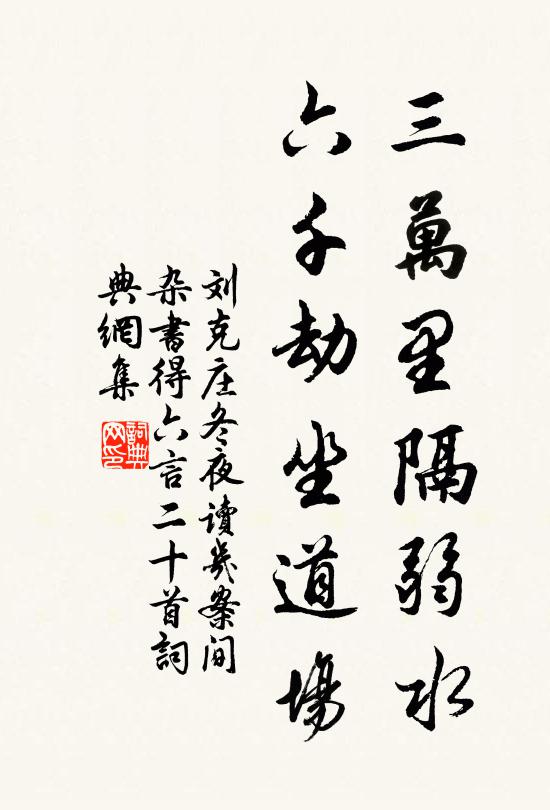 三萬里隔弱水
六千劫坐道場
刘克庄冬夜讀幾案間
杂書得六言二十首詞
典網集
詞典網印